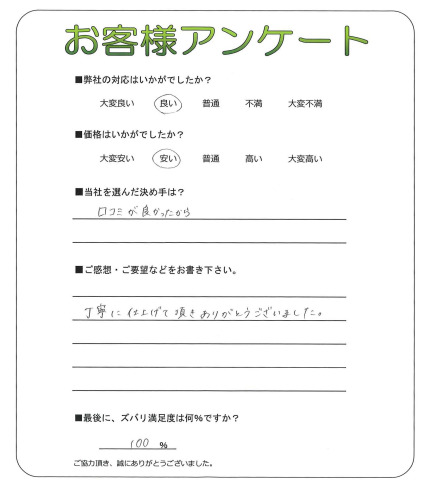 お客様アンケート
■弊社の対応はいかがでしたか？
大変良い 良い 普通 不満 大変不満
■価格はいかがでしたか？
大変安い 安い 普通 高い 大変高い
■当社を選んだ決め手は？
口コミが良かったから
■ご感想・ご要望などをお書き下さい。
丁寧に仕上げて頂きありがとうございました。
■最後に、ズバリ満足度は何％ですか？
100 %
ご協力頂き、誠にありがとうございました。